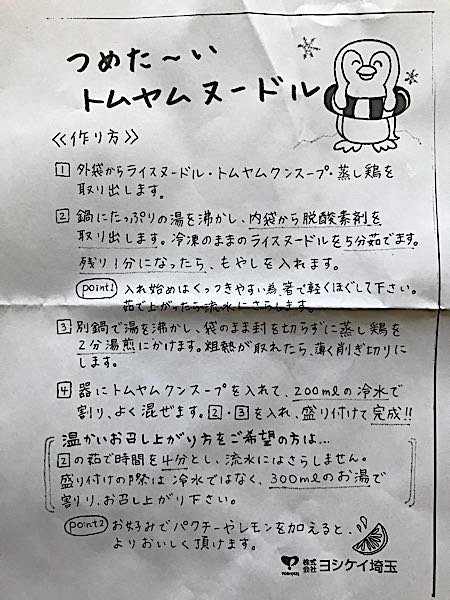 つめた～い
トムヤムヌードル
≪作り方≫
1 外袋からライスヌードル・トムヤムクンスープ・蒸し鶏を
取り出します。
2 鍋にたっぷりの湯を沸かし、内袋から脱酸素剤を
取り出します。冷凍のままのライスヌードルを5分茹でます。
残り1分になったら、もやしを入れます。
point1 入れ始めはくっつきやすい為、箸で軽くほぐして下さい。
茹で上がったら流水にさらします。
3 別鍋で湯を沸かし、袋のまま封を切らずに蒸し鶏を
2分湯煎にかけます。粗熱が取れたら、薄く削ぎ切りに
します。
4 器にトムヤムクンスープを入れて、200mlの冷水で
割り、よく混ぜます。2・3を入れ、盛り付けて完成!!
温かいお召し上がり方をご希望の方は…
2の茹で時間を4分とし、流水にはさらしません。
盛り付けの際は冷水ではなく、300mlのお湯で
割り、お召し上がり下さい。
point2 お好みでパクチーやレモンを加えると、
よりおいしく頂けます。
株式会社 ヨシケイ埼玉